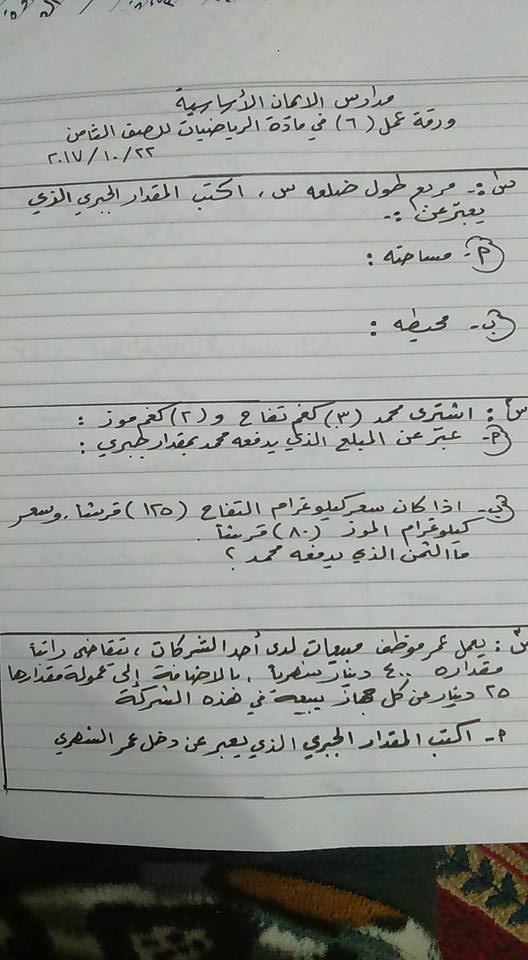 مدارس الايمان الأساسية
ورقة عمل (٦) في مادة الرياضيات للصف الثامن
٢٠١٧/١٠/٢٢
س١:- مربع طول ضلعه س ، اكتب المقدار الجبري الذي
يعبّر عن :-
أ- مساحته :
ب- محيطه :
س٢: اشترى محمد (٣) كغم تفاح و (٢) كغم موز :
أ- عبّر عن المبلغ الذي يدفعه محمد بمقدار جبري :
ب- اذا كان سعر كيلوغرام التفاح (١٢٥) قرشاً ، وسعر
كيلوغرام الموز (٨٠) قرشاً .
ما الثمن الذي يدفعه محمد ؟
س٣: يعمل عمر موظف مبيعات لدى أحد الشركات ، يتقاضى راتباً
مقداره ٤٠٠ دينار شهرياً ، بالاضافة إلى عمولة مقدارها
٢٥ دينار عن كل جهاز يبيعه في هذه الشركة
أ- اكتب المقدار الجبري الذي يعبر عن دخل عمر الشهري